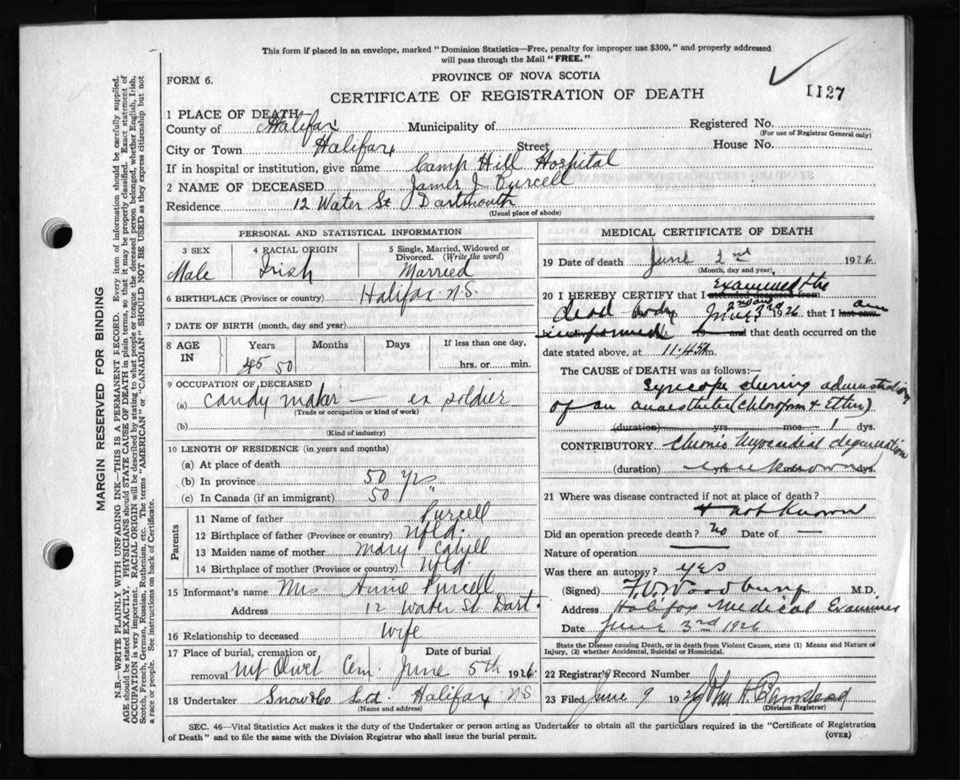 This form if placed in an envelope, marked "Dominion Statistics—Free, penalty for improper use $300," and properly addressed
will pass through the Mail "FREE."
FORM 6.
PROVINCE OF NOVA SCOTIA
CERTIFICATE OF REGISTRATION OF DEATH
1127
1 PLACE OF DEATH
County of Halifax Municipality of Registered No.
(For use of Registrar General only)
City or Town Halifax Street House No.
If in hospital or institution, give name Camp Hill Hospital
2 NAME OF DECEASED James J. Purcell
Residence 12 Water St Dartmouth
(Usual place of abode)
PERSONAL AND STATISTICAL INFORMATION
3 SEX 4 RACIAL ORIGIN 5 Single, Married, Widowed or
Divorced. (Write the word)
Male Irish Married
6 BIRTHPLACE (Province or country) Halifax N.S.
7 DATE OF BIRTH (month, day and year)
8 AGE IN Years Months Days If less than one day,
45 50 hrs. or min.
9 OCCUPATION OF DECEASED
(a) Candy maker — ex soldier
(Trade or occupation or kind of work)
(b)
(Kind of industry)
10 LENGTH OF RESIDENCE (in years and months)
(a) At place of death
(b) In province 50 yrs
(c) In Canada (if an immigrant) 50 "
Parents
11 Name of father Purcell
12 Birthplace of father (Province or country) Nfld.
13 Maiden name of mother Mary Cahill
14 Birthplace of mother (Province or country) Nfld.
15 Informant's name Mrs Annie Purcell
Address 12 Water St. Dart.
16 Relationship to deceased Wife
17 Place of burial, cremation or removal Date of burial
Mt Olivet Cem. June 5th 1926
18 Undertaker Snow & Co Ltd. Halifax N S
(Name and address)
MEDICAL CERTIFICATE OF DEATH
19 Date of death June 2nd 1926
(Month, day and year)
20 I HEREBY CERTIFY that I attended deceased from examined the
dead body 2nd and June 3rd 1926 that I last saw am
informed 19 and that death occurred on
date stated above, at 11.45 m.
The CAUSE of DEATH was as follows:
Syncope during administration
of an anaesthetic (chloroform & Ether)
(duration) yrs. mos. 1 dys.
CONTRIBUTORY Chronic myocardial degeneration
(duration) unknown dys.
21 Where was disease contracted if not at place of death?
not known
Did an operation precede death? No Date of —
Nature of operation
Was there an autopsy? Yes
(Signed) F. V. Woodbury M.D.
Address Halifax Medical Examiner
Date June 3rd 1926
State the Disease causing Death, or in death from Violent Causes, state (1) Means and Nature of Injury, (2) whether Accidental, Suicidal or Homicidal.
22 Registrar's Record Number
23 Filed June 9 1926
(Division Registrar)
SEC. 46—Vital Statistics Act makes it the duty of the Undertaker or person acting as Undertaker to obtain all the particulars required in the "Certificate of Registration
of Death" and to file the same with the Division Registrar who shall issue the burial permit. (OVER)
MARGIN RESERVED FOR BINDING
N.B.—WRITE PLAINLY, WITH UNFADING INK—THIS IS A PERMANENT RECORD. Every item of information should be carefully supplied.
AGE should be stated EXACTLY. PHYSICIANS should STATE CAUSE OF DEATH in plain terms, so that it may be properly classified. Exact statement of
OCCUPATION is very important. RACIAL ORIGIN will be described by stating to what people or tongue the deceased person belonged, whether English, Irish,
Scotch, French, German, Russian, Ruthenian, etc. The terms "AMERICAN" or "CANADIAN" SHOULD NOT BE USED as they express citizenship but not
a race or people. See instructions on back of Certificate.